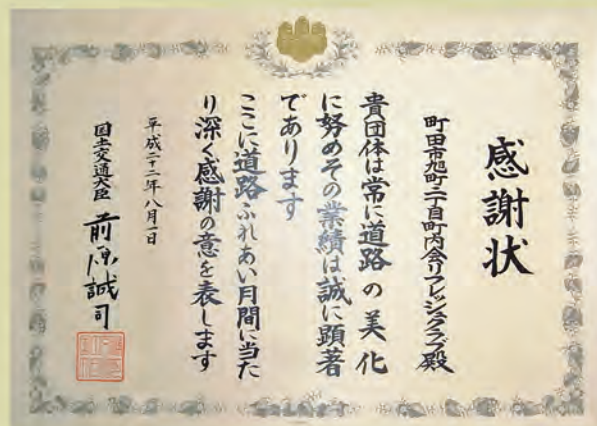 感謝状
町田市旭町二丁目町内会リフレッシュクラブ殿
貴団体は常に道路の美化
に努めその業績は誠に顕著
であります
ここに道路ふれあい月間に当た
り深く感謝の意を表します
平成二十二年八月一日
国土交通大臣 前原誠司